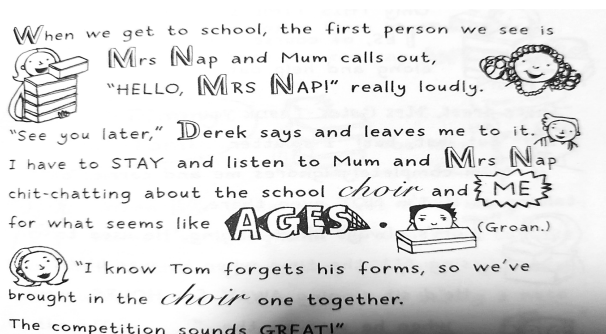 When we get to school, the first person we see is
Mrs Nap and Mum calls out,
"HELLO, MRS NAP!" really loudly.
"See you later," Derek says and leaves me to it.
I have to STAY and listen to Mum and Mrs Nap
chit-chatting about the school choir and ME
for what seems like AGES. (Groan.)
"I know Tom forgets his forms, so we've
brought in the choir one together.
The competition sounds GREAT!"